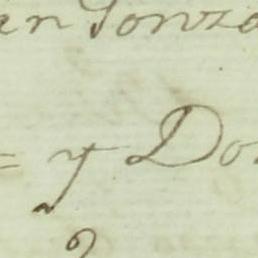 an Gonza
= y Do